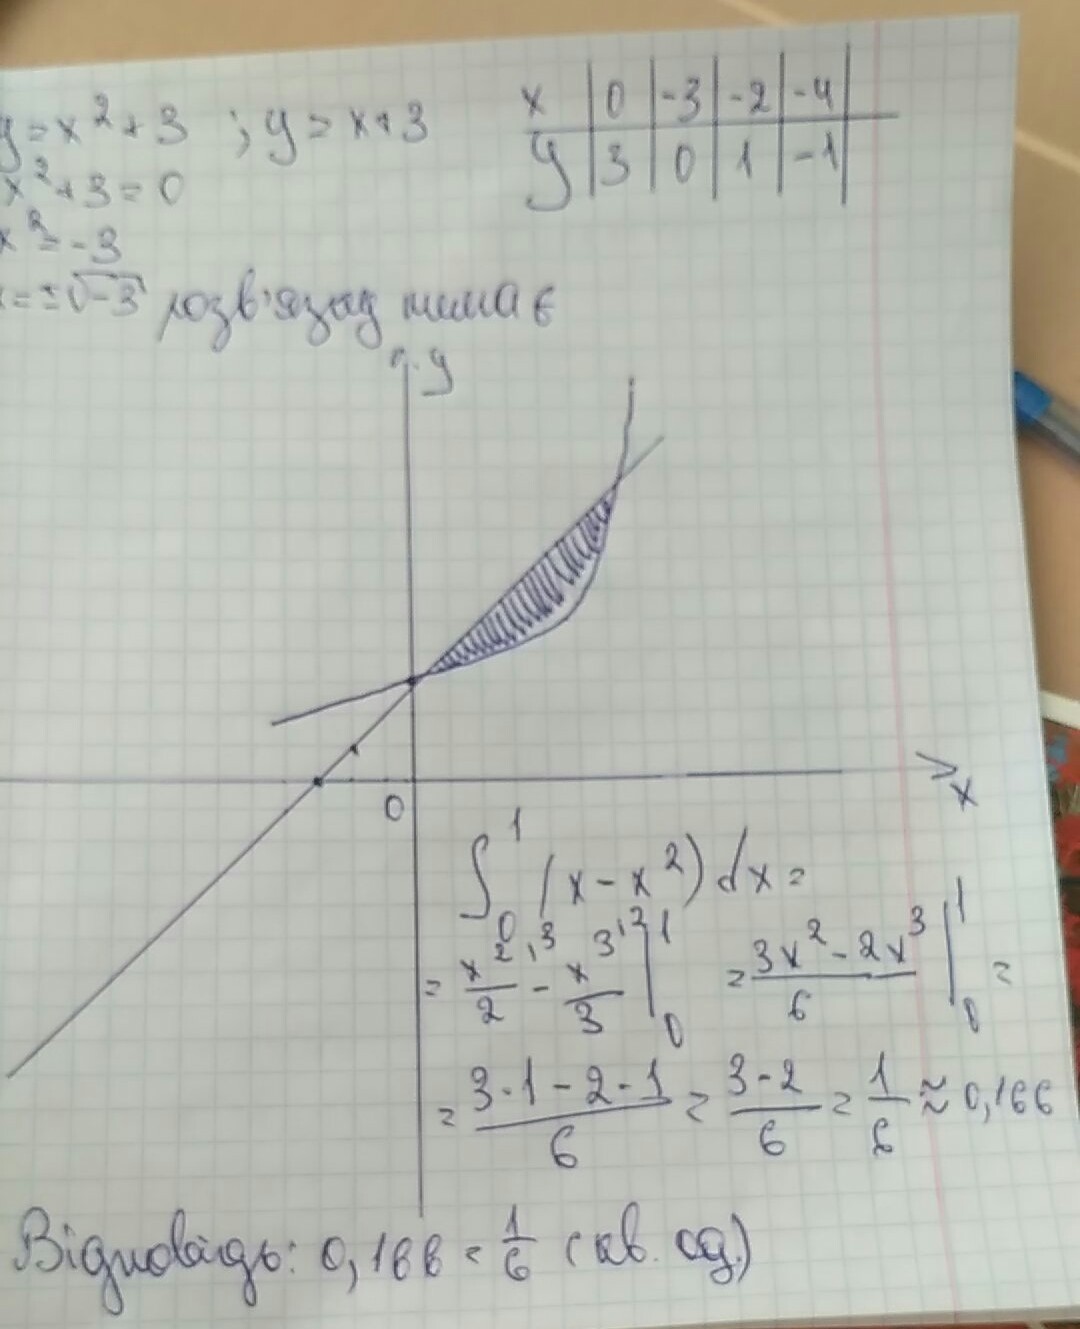 y = x² + 3 ; y = x + 3
x | 0 | -3 | -2 | -4 |
y | 3 | 0 | 1 | -1 |
x² + 3 = 0
x² = -3
x = ±√-3 розв'язку немає
y
0
x
∫₀¹ (x - x²) dx =
= x²·³/2 - x³·²/3 |₀¹ = 3x² - 2x³/6 |₀¹ =
= 3·1 - 2·1/6 = 3-2/6 = 1/6 ≈ 0,166
Відповідь: 0,166 = 1/6 (кв. од.)